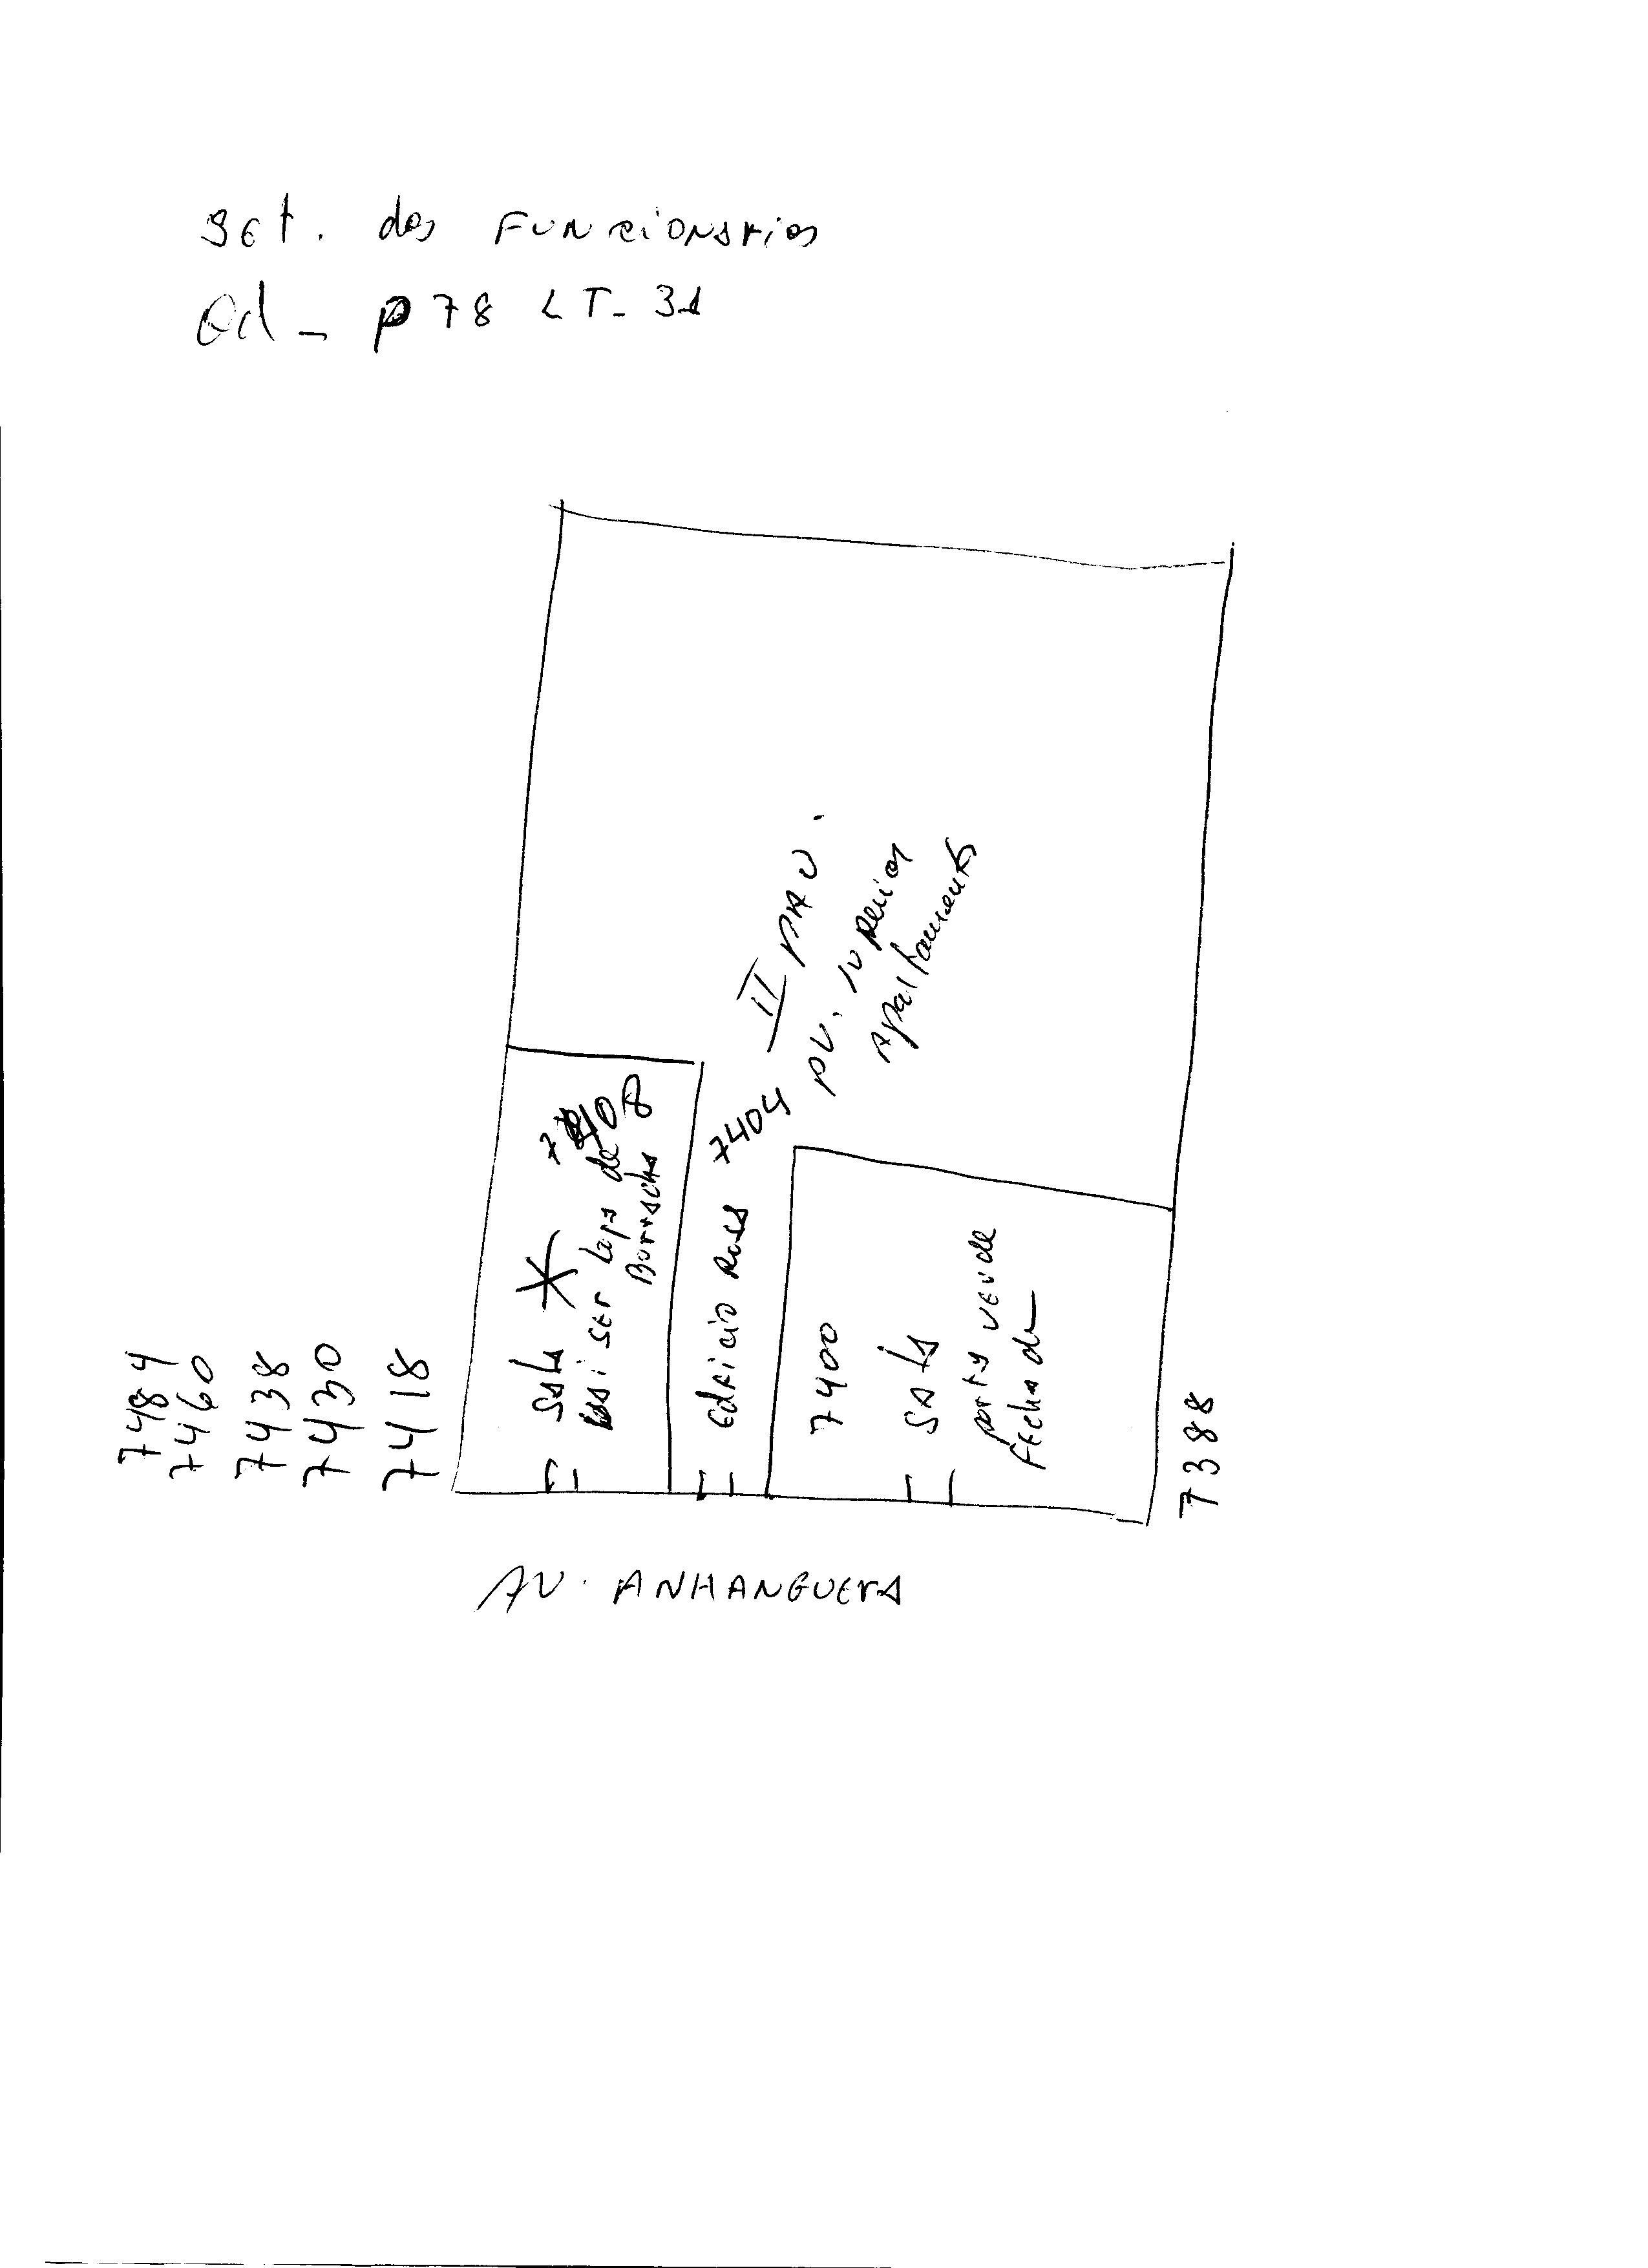 Set. dos Funcionarios
Qd - P78 LT- 31
7484
7460
7438
7430
7418
Sala 7408
ser Loja de
Borracha
Edificio Rosa 7404 II PAV.
apartamentos
7400
Sala
porta verde
Fechada
7388
AV. ANHANGUERA